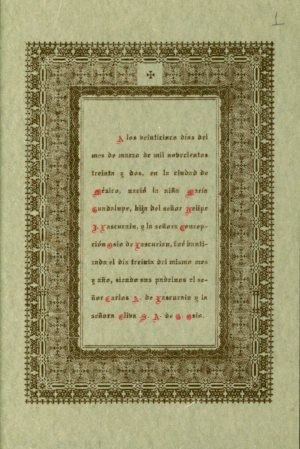 1
A los veinticinco dias del
mes de marzo de mil novecientos
treinta y dos, en la ciudad de
México, nació la niña Maria
Guadalupe, hija del señor Felipe
J. Yascurain, y la señora Concep-
ción Osio de Lascurain, fué bauti-
zada el dia treinta del mismo mes
y año, siendo sus padrinos el se-
ñor Carlos A. de Lascurain y la
señora Elisa S. A. de G. Osio.